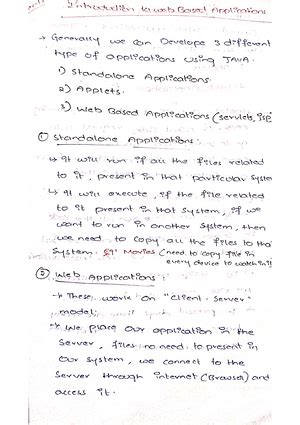 Introduction to web Based Applications
→ Generally we can Develope 3 different
type of applications using JAVA.
1) Standalone Applications.
2) Applets.
3) Web Based Applications (servlets, jsp
① Standalone Applications:
→ It will run if all the files related
to it, present in that particular syste
→ It will execute, if the file related
to it present in that system, if we
want to run in another system, then
we need to copy all the files to tha
System. Movies (need to copy file in
every device to watch in it
② Web Applications:
→ These work on "Client-Server"
model.
→ We place our application in the
Server, files no need to present in
our system, we connect to the
Server through internet (Browser) and
access it.